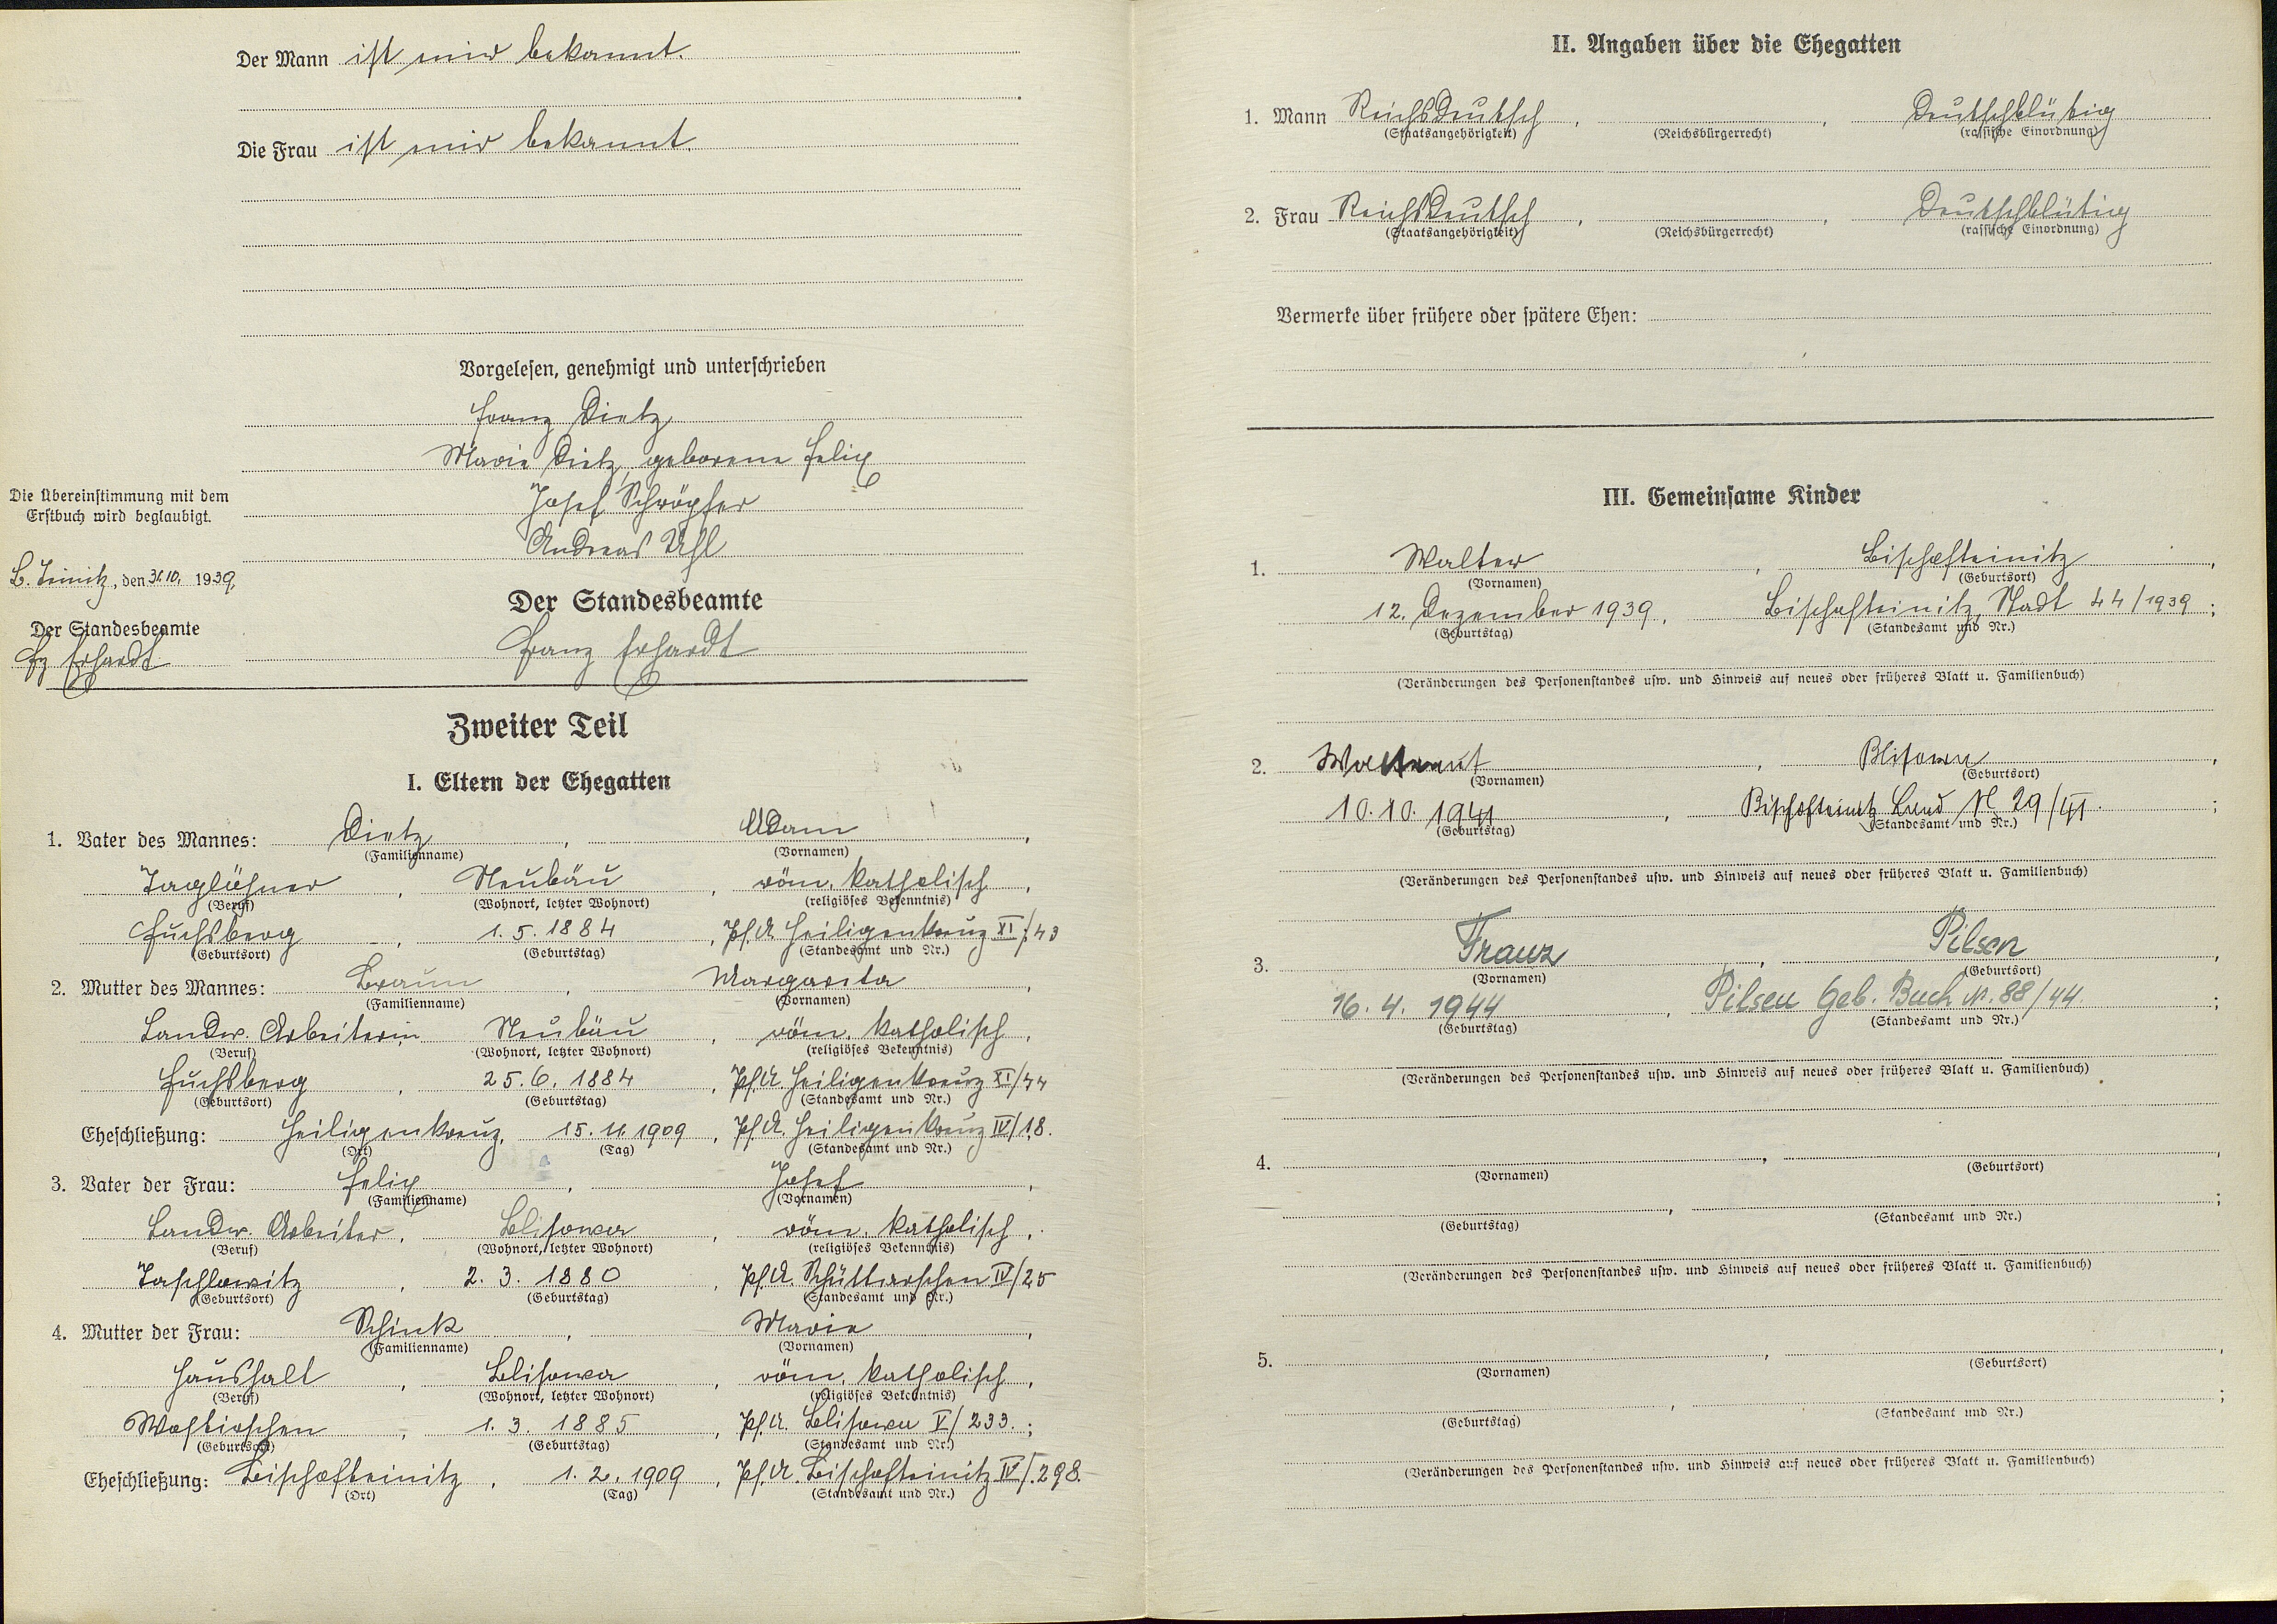 Der Mann ist mir bekannt.
Die Frau ist mir bekannt.
Vorgelesen, genehmigt und unterschrieben
Franz Dietz
Marie Dietz, geborene Felix
Josef Schröpfer
Andreas Uhl
Die Übereinstimmung mit dem
Erstbuch wird beglaubigt.
B. Teinitz, den 31.10. 1939.
Der Standesbeamte
Fz Erhardt
Der Standesbeamte
Franz Erhardt
Zweiter Teil
I. Eltern der Ehegatten
1. Vater des Mannes: Dietz, Adam,
(Familienname) (Vornamen)
Taglöhner, Neubäu, röm. katholisch,
(Beruf) (Wohnort, letzter Wohnort) (religiöses Bekenntnis)
Fuchsberg, 1.5.1884, Pf.A. Heiligenkreuz XI/43
(Geburtsort) (Geburtstag) (Standesamt und Nr.)
2. Mutter des Mannes: Braun, Margareta,
(Familienname) (Vornamen)
Landw. Arbeiterin Neubäu, röm. katholisch,
(Beruf) (Wohnort, letzter Wohnort) (religiöses Bekenntnis)
Fuchsberg, 25.6.1884, Pf.A. Heiligenkreuz XI/44
(Geburtsort) (Geburtstag) (Standesamt und Nr.)
Eheschließung: Heiligenkreuz, 15.11.1909, Pf.A. Heiligenkreuz IV/18.
(Ort) (Tag) (Standesamt und Nr.)
3. Vater der Frau: Felix, Josef,
(Familienname) (Vornamen)
Landw. Arbeiter, Blisowa, röm. katholisch,
(Beruf) (Wohnort, letzter Wohnort) (religiöses Bekenntnis)
Taschlowitz, 2.3.1880, Pf.A. Schüttarschen IV/25
(Geburtsort) (Geburtstag) (Standesamt und Nr.)
4. Mutter der Frau: Schink, Marie,
(Familienname) (Vornamen)
Haushalt, Blisowa, röm. katholisch,
(Beruf) (Wohnort, letzter Wohnort) (religiöses Bekenntnis)
Wostirschen, 1.3.1885, Pf.A. Blisowa V/233.;
(Geburtsort) (Geburtstag) (Standesamt und Nr.)
Eheschließung: Bischofteinitz, 1.2.1909, Pf.A. Bischofteinitz IV/298.
(Ort) (Tag) (Standesamt und Nr.)
II. Angaben über die Ehegatten
1. Mann Reichsdeutsch, , Deutschblütig
(Staatsangehörigkeit) (Reichsbürgerrecht) (rassische Einordnung)
2. Frau Reichsdeutsch, , Deutschblütig
(Staatsangehörigkeit) (Reichsbürgerrecht) (rassische Einordnung)
Vermerke über frühere oder spätere Ehen:
III. Gemeinsame Kinder
1. Walter, Bischofteinitz,
(Vornamen) (Geburtsort)
12. Dezember 1939, Bischofteinitz, Stadt 44/1939;
(Geburtstag) (Standesamt und Nr.)
(Veränderungen des Personenstandes usw. und Hinweis auf neues oder früheres Blatt u. Familienbuch)
2. , Blisowa,
(Vornamen) (Geburtsort)
10.10.1941, Bischofteinitz Land N 29/41.;
(Geburtstag) (Standesamt und Nr.)
(Veränderungen des Personenstandes usw. und Hinweis auf neues oder früheres Blatt u. Familienbuch)
3. Franz, Pilsen,
(Vornamen) (Geburtsort)
16.4.1944, Pilsen Geb. Buch N. 88/44.;
(Geburtstag) (Standesamt und Nr.)
(Veränderungen des Personenstandes usw. und Hinweis auf neues oder früheres Blatt u. Familienbuch)
4. , ,
(Vornamen) (Geburtsort)
, ;
(Geburtstag) (Standesamt und Nr.)
(Veränderungen des Personenstandes usw. und Hinweis auf neues oder früheres Blatt u. Familienbuch)
5. , ,
(Vornamen) (Geburtsort)
, ;
(Geburtstag) (Standesamt und Nr.)
(Veränderungen des Personenstandes usw. und Hinweis auf neues oder früheres Blatt u. Familienbuch)